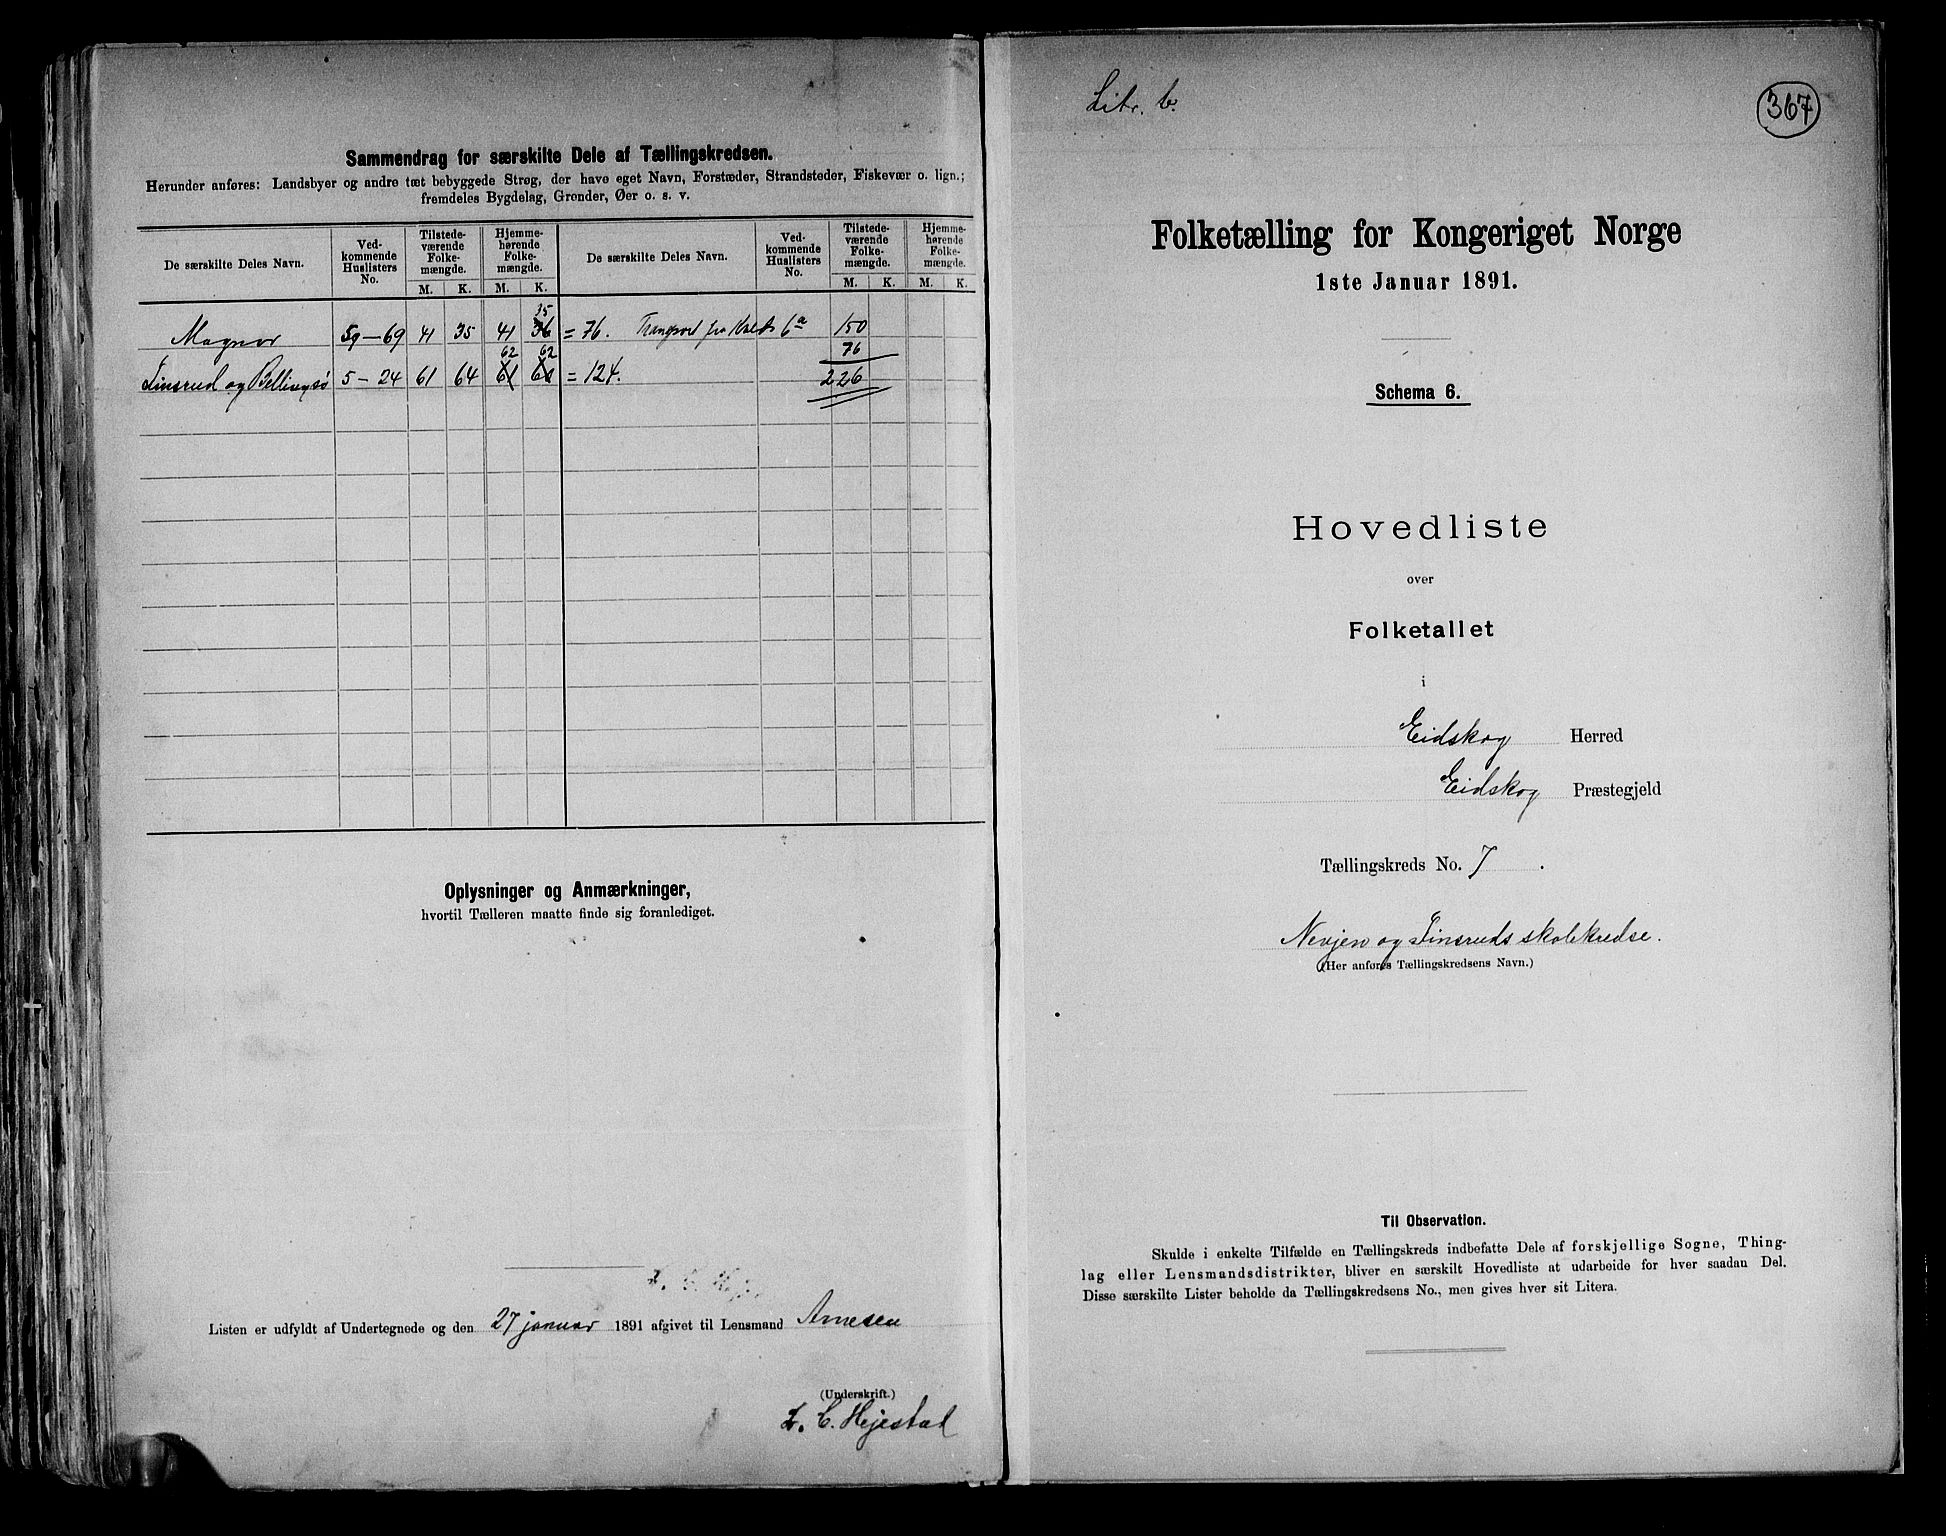 Sammendrag for særskilte Dele af Tællingskredsen.
Herunder anføres: Landsbyer og andre tæt bebyggede Strøg, der have eget Navn, Forstæder, Strandsteder, Fiskevær o. lign.;
fremdeles Bygdelag, Grender, Øer o. s. v.
De særskilte Deles Navn. Ved-kommende Huslisters No. Tilstede-værende Folke-mængde. Hjemme-hørende Folke-mængde. De særskilte Deles Navn. Ved-kommende Huslisters No. Tilstede-værende Folke-mængde. Hjemme-hørende Folke-mængde.
M. K. M. K. M. K. M. K.
35
Magnor 59-69 41 35 41 36 = 76. Transport fra Kreds 6a 150
62 62 76
Finsrud og Bellingsø 5-24 61 64 61 61 = 124. 226
Oplysninger og Anmærkninger,
hvortil Tælleren maatte finde sig foranlediget.
Listen er udfyldt af Undertegnede og den 27 januar 1891 afgivet til Lensmand Arnesen
(Underskrift.)
L. C. Hejestad
Litr. b.
367
Folketælling for Kongeriget Norge
1ste Januar 1891.
Schema 6.
Hovedliste
over
Folketallet
i
Eidskog Herred
Eidskog Præstegjeld
Tællingskreds No. 7.
Nevjen og Finsruds skolekredse.
(Her anføres Tællingskredsens Navn.)
Til Observation.
Skulde i enkelte Tilfælde en Tællingskreds indbefatte Dele af forskjellige Sogne, Thing-
lag eller Lensmandsdistrikter, bliver en særskilt Hovedliste at udarbeide for hver saadan Del.
Disse særskilte Lister beholde da Tællingskredsens No., men gives hver sit Litera.